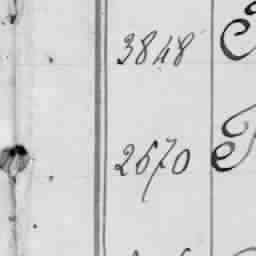 3848
2670